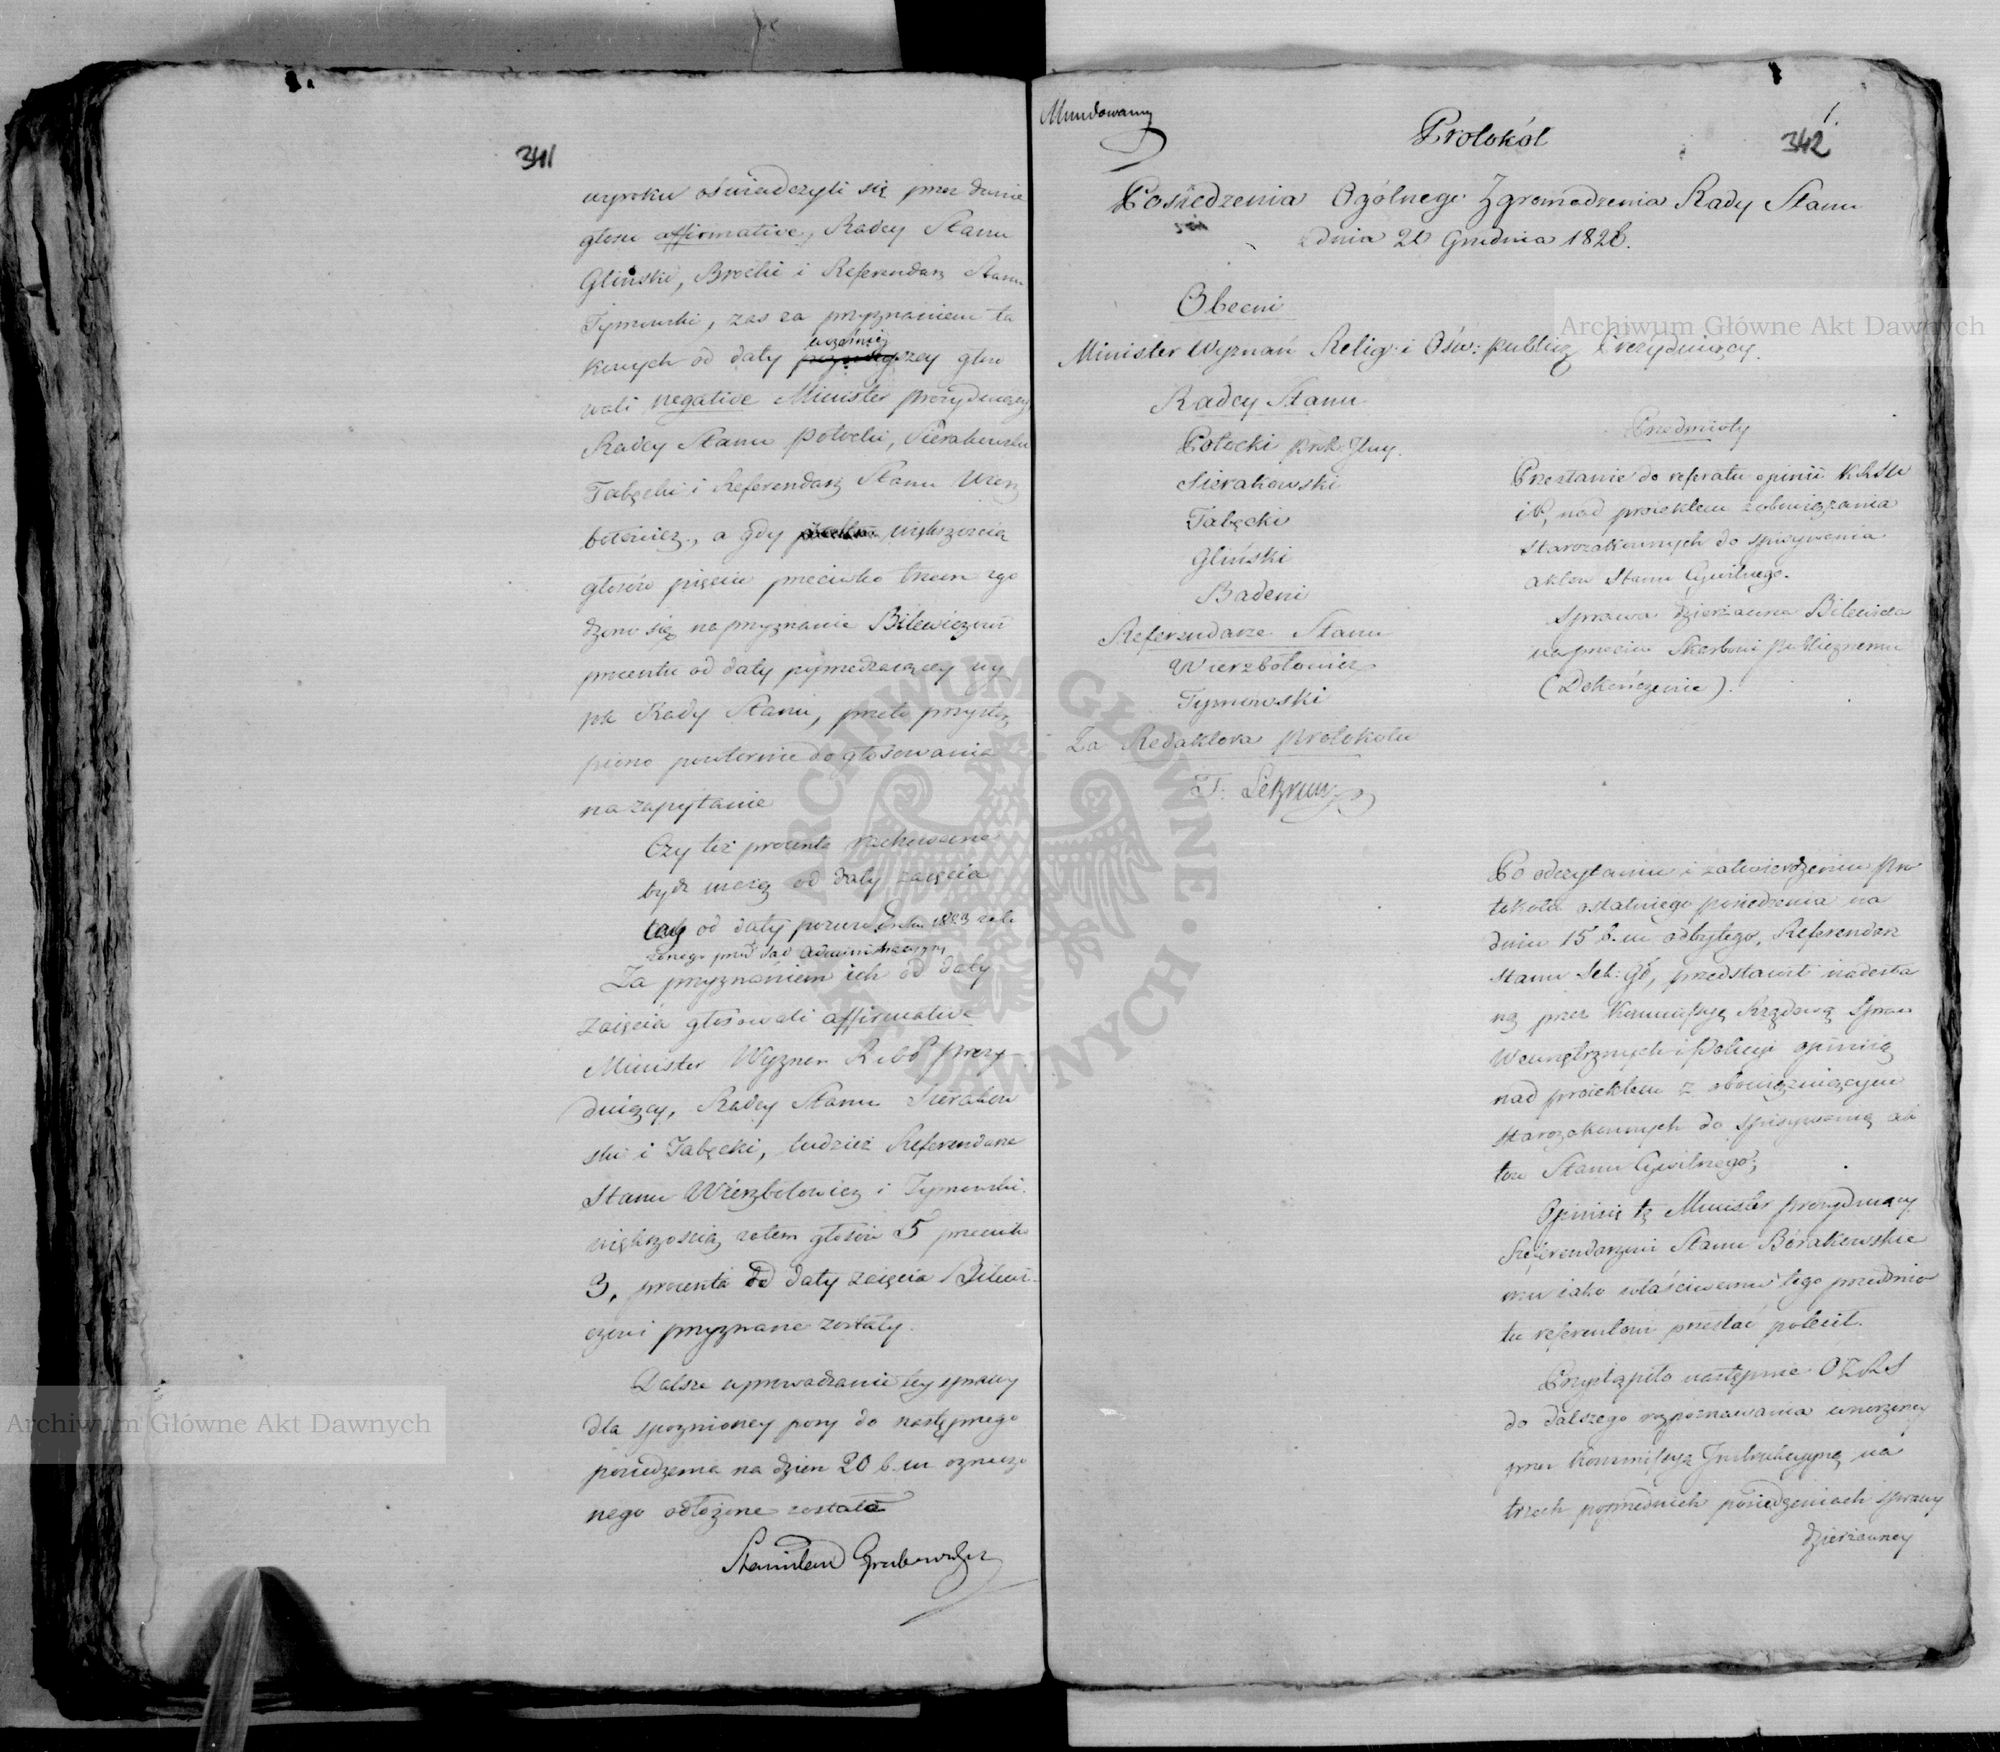 341
wyroku oświadczyli się przez danie
głosu affirmative, Radcy Stanu
Gliński, Brocki i Referendarz Stanu
Tymowski, zaś za przyznaniem ta
kowych od daty wcześniejszey głoso
wali negative Minister prezydujący,
Radcy Stanu Potocki, Sierakowski
Tabęcki i Referendarz Stanu Wierz
bołowicz, a gdy większością
głosów pięciu przeciwko trzem zgo
dzono się na przyznanie Bilewiczowi
procentu od daty poprzedzającey wy
rok Rady Stanu, przeto przystą
piono powtórnie do głosowania
na zapytanie
Czy też procenta rachowane
bydź mają od daty zajęcia
czy od daty pozwu w roku 1823 zało
żonego przed Sąd Administracyjny
Za przyznaniem ich od daty
zajęcia głosowali affirmative
Minister Wyznań R. i O. P. prezy
dujący, Radcy Stanu Sierakow
ski i Tabęcki, tudzież Referendarze
Stanu Wierzbołowicz i Tymowski.
większością zatem głosów 5 przeciwko
3, procenta od daty zajęcia Bilewi-
czowi przyznane zostały.
Dalsze wprowadzanie tey sprawy
dla spoznioney pory do następnego
posiedzenia na dzień 20 b. m oznaczo
nego odłożone zostało
Stanisław Grabowski
Mundowany
1.
342
Protokół
Posiedzenia Ogólnego Zgromadzenia Rady Stanu
z dnia 20 Grudnia 1828.
Obecni
Minister Wyznań Relig: i Ośw: publicz Prezydujący.
Radcy Stanu
Potocki Prok. Jlny.
Sierakowski
Tabęcki
Gliński
Badeni
Referendarze Stanu
Wierzbołowicz
Tymowski
Za Redaktora protokołu
Przedmioty
Przesłanie do referatu opinii K R S W
i P, nad projektem zobowiązania
starozakonnych do spisywania
aktów Stanu Cywilnego.
Sprawa dzierżawna Bilewicza
naprzeciw Skarbowi publicznemu
(Dokończenie).
Po odczytaniu i zatwierdzeniu pro
tokółu ostatniego posiedzenia na
dniu 15 b. m odbytego, Referendarz
Stanu Sek: Gł, przedstawił nadesła
ną przez Kommissyę Rządową Spraw
Wewnętrznych i Policyi opinią
nad projektem z obowiązującym
starozakonnych do spisywania ak
tów Stanu Cywilnego;
Opinię tę Minister prezydujący
Referendarzowi Stanu Borakowskie
mu iako właściwemu tego przedmio
tu referentowi przesłać polecił.
Przystąpiło następnie OZRS
do dalszego rozpoznawania wnorzoney
przez Kommissyą Instrukcyjną na
trzech poprzednich posiedzeniach sprawy
dzierżawney
Archiwum Główne Akt Dawnych
Archiwum Główne Akt Dawnych
ARCHIWUM GŁÓWNE AKT DAWNYCH